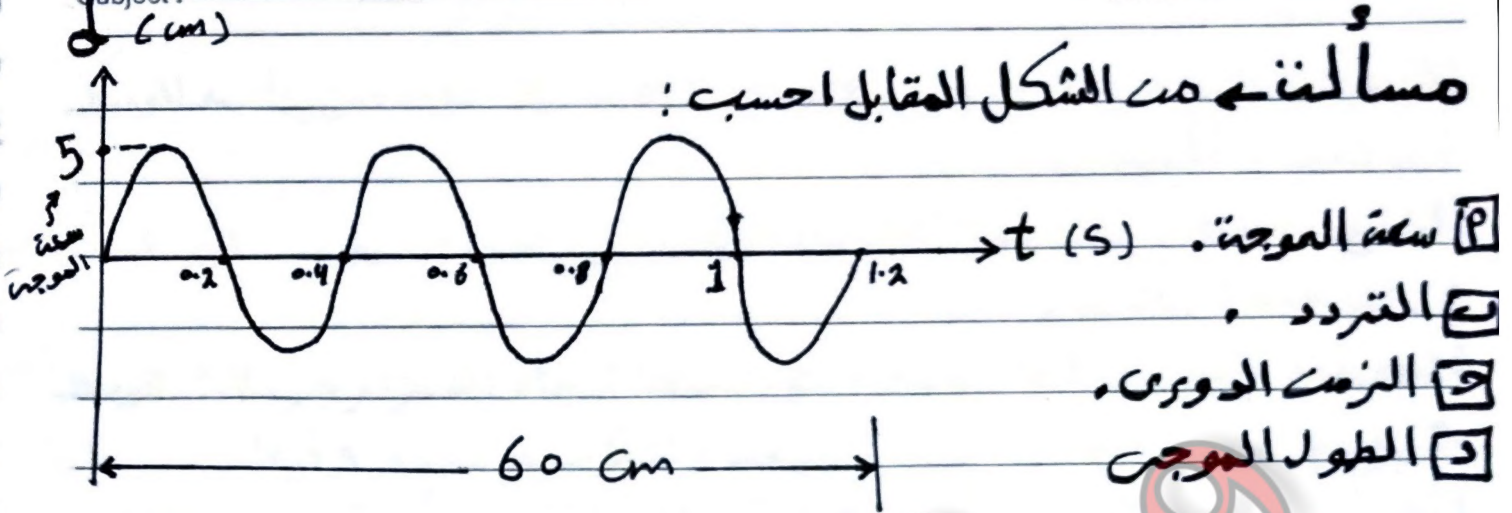 d (cm)
مسألة ← من الشكل المقابل احسب :
5
سعة
الموجة
0.2 0.4 0.6 0.8 1 1.2 t (s)
أ سعة الموجة .
ب التردد .
ج الزمن الدورى .
د الطول الموجى
60 cm